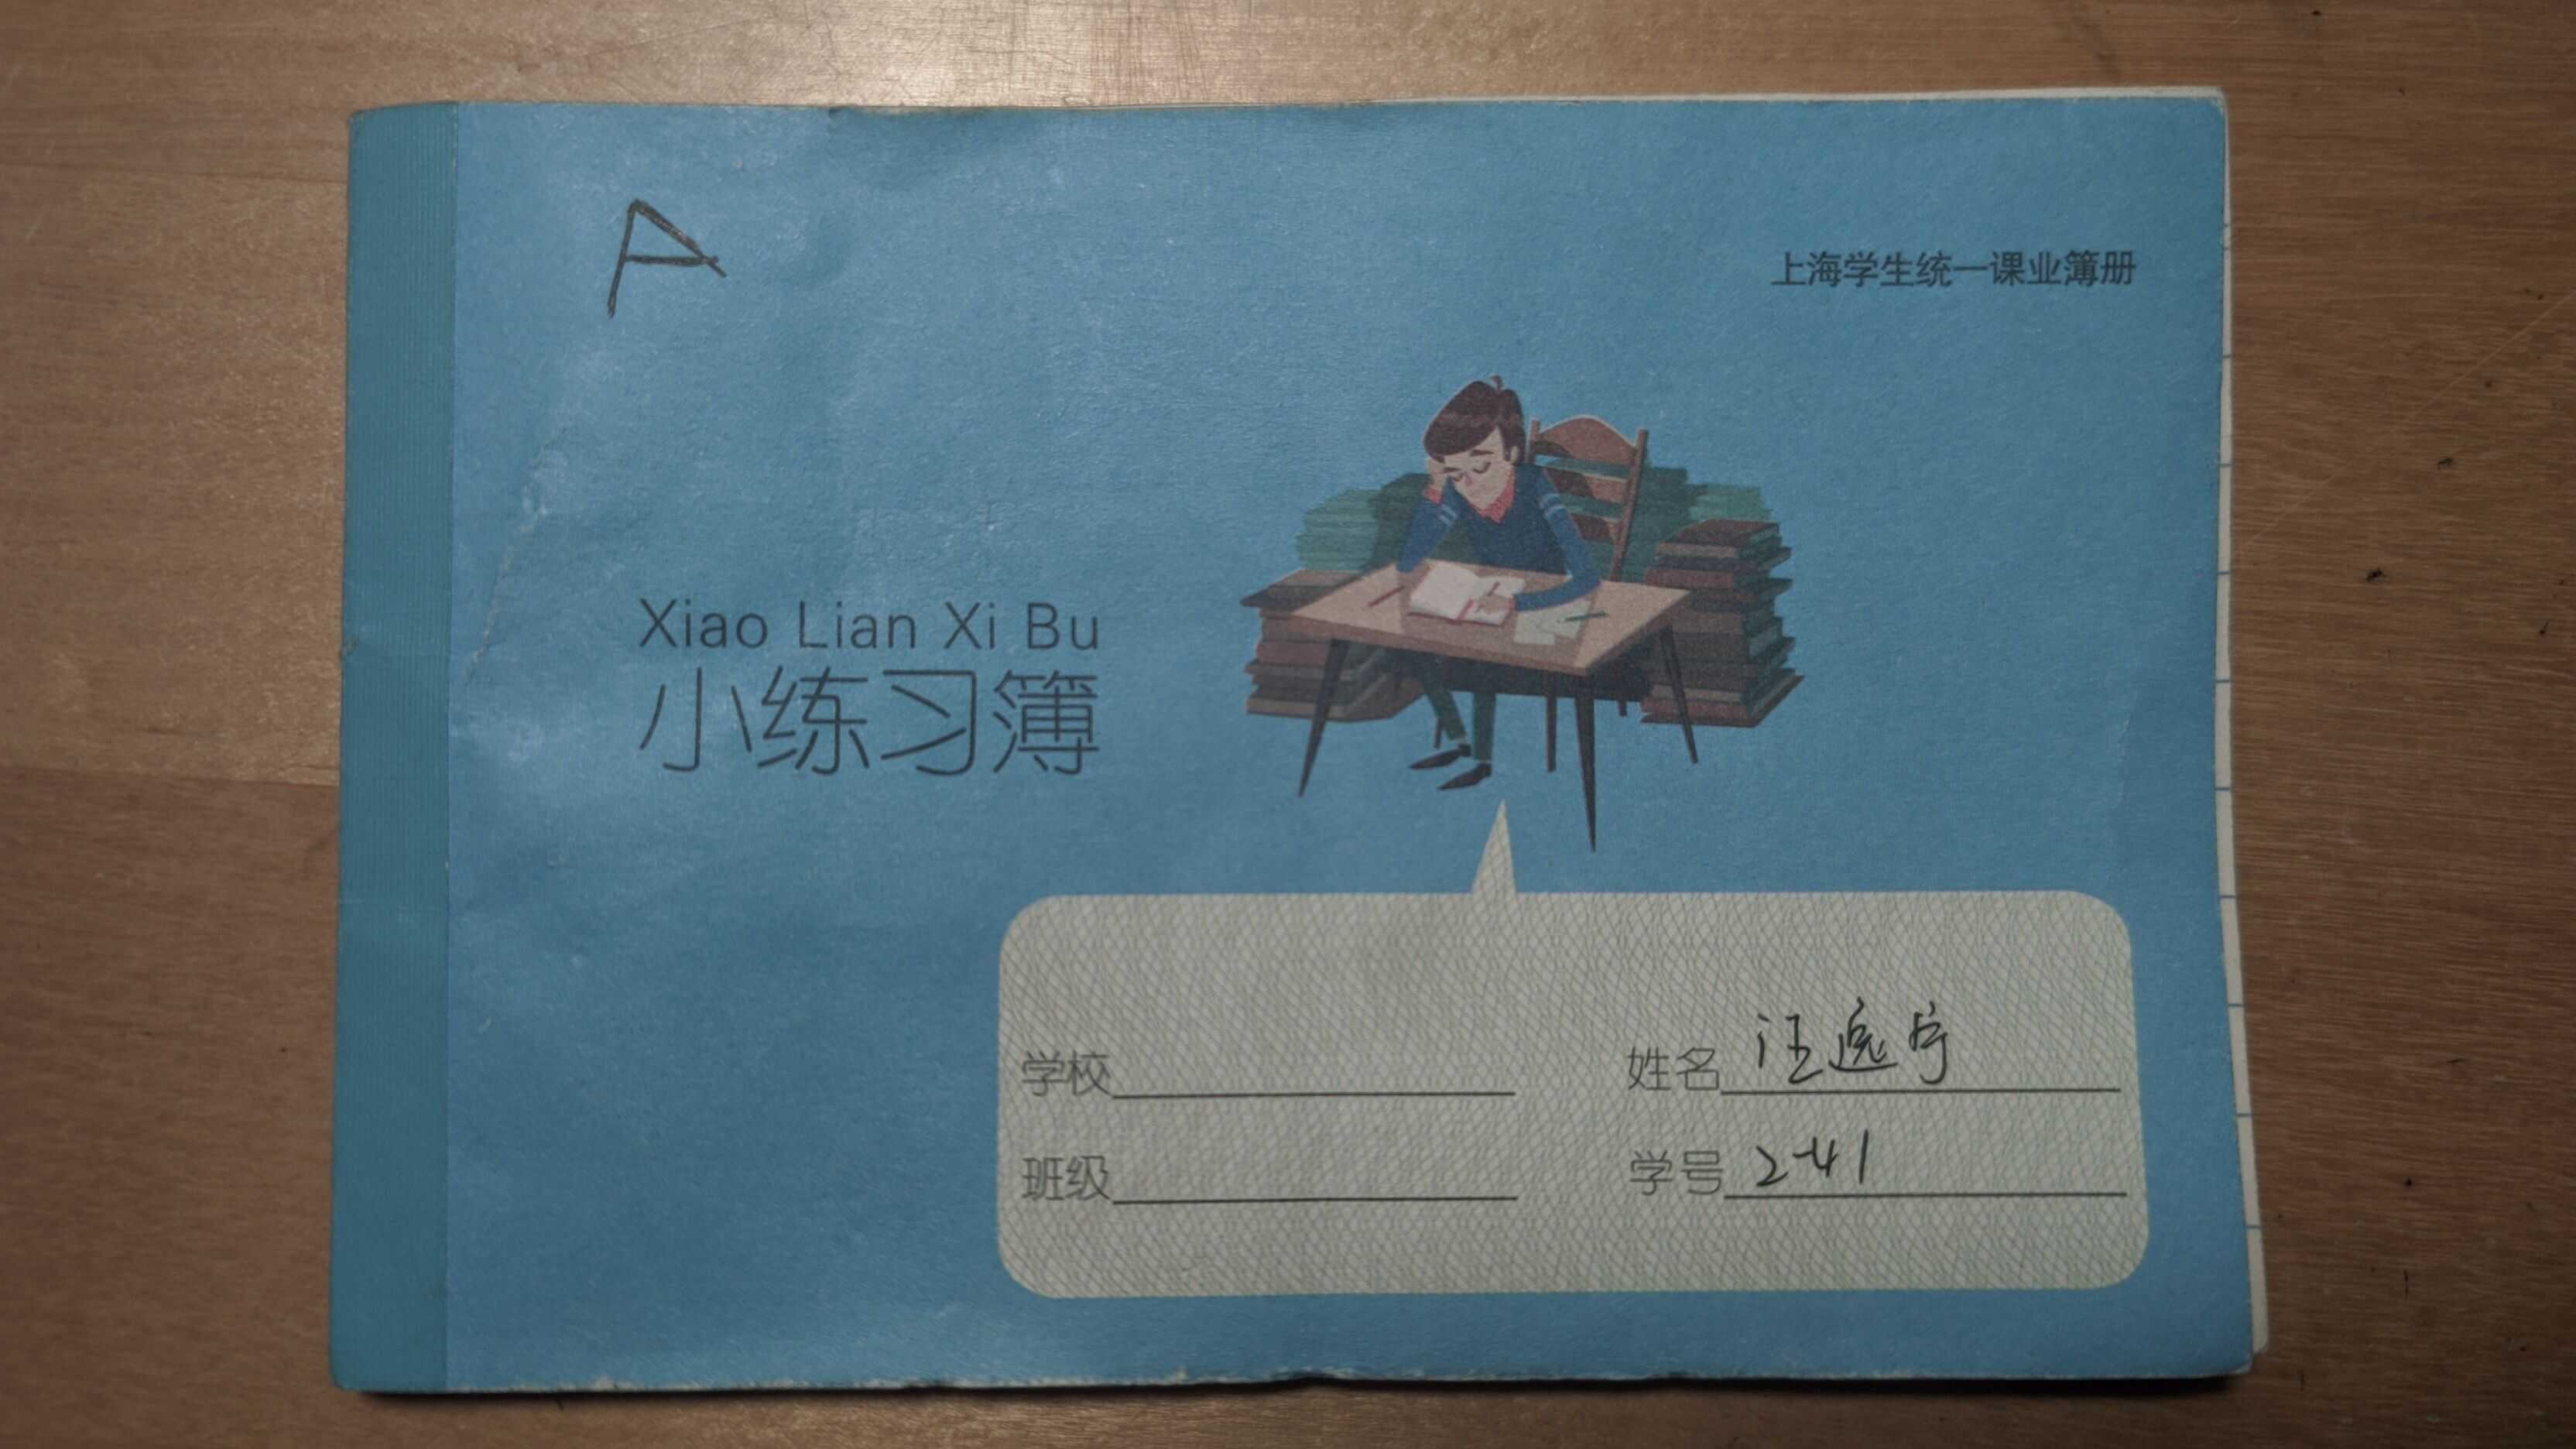 A
上海学生统一课业簿册
Xiao Lian Xi Bu
小练习簿
学校
姓名 汪逸宁
班级
学号 2-41